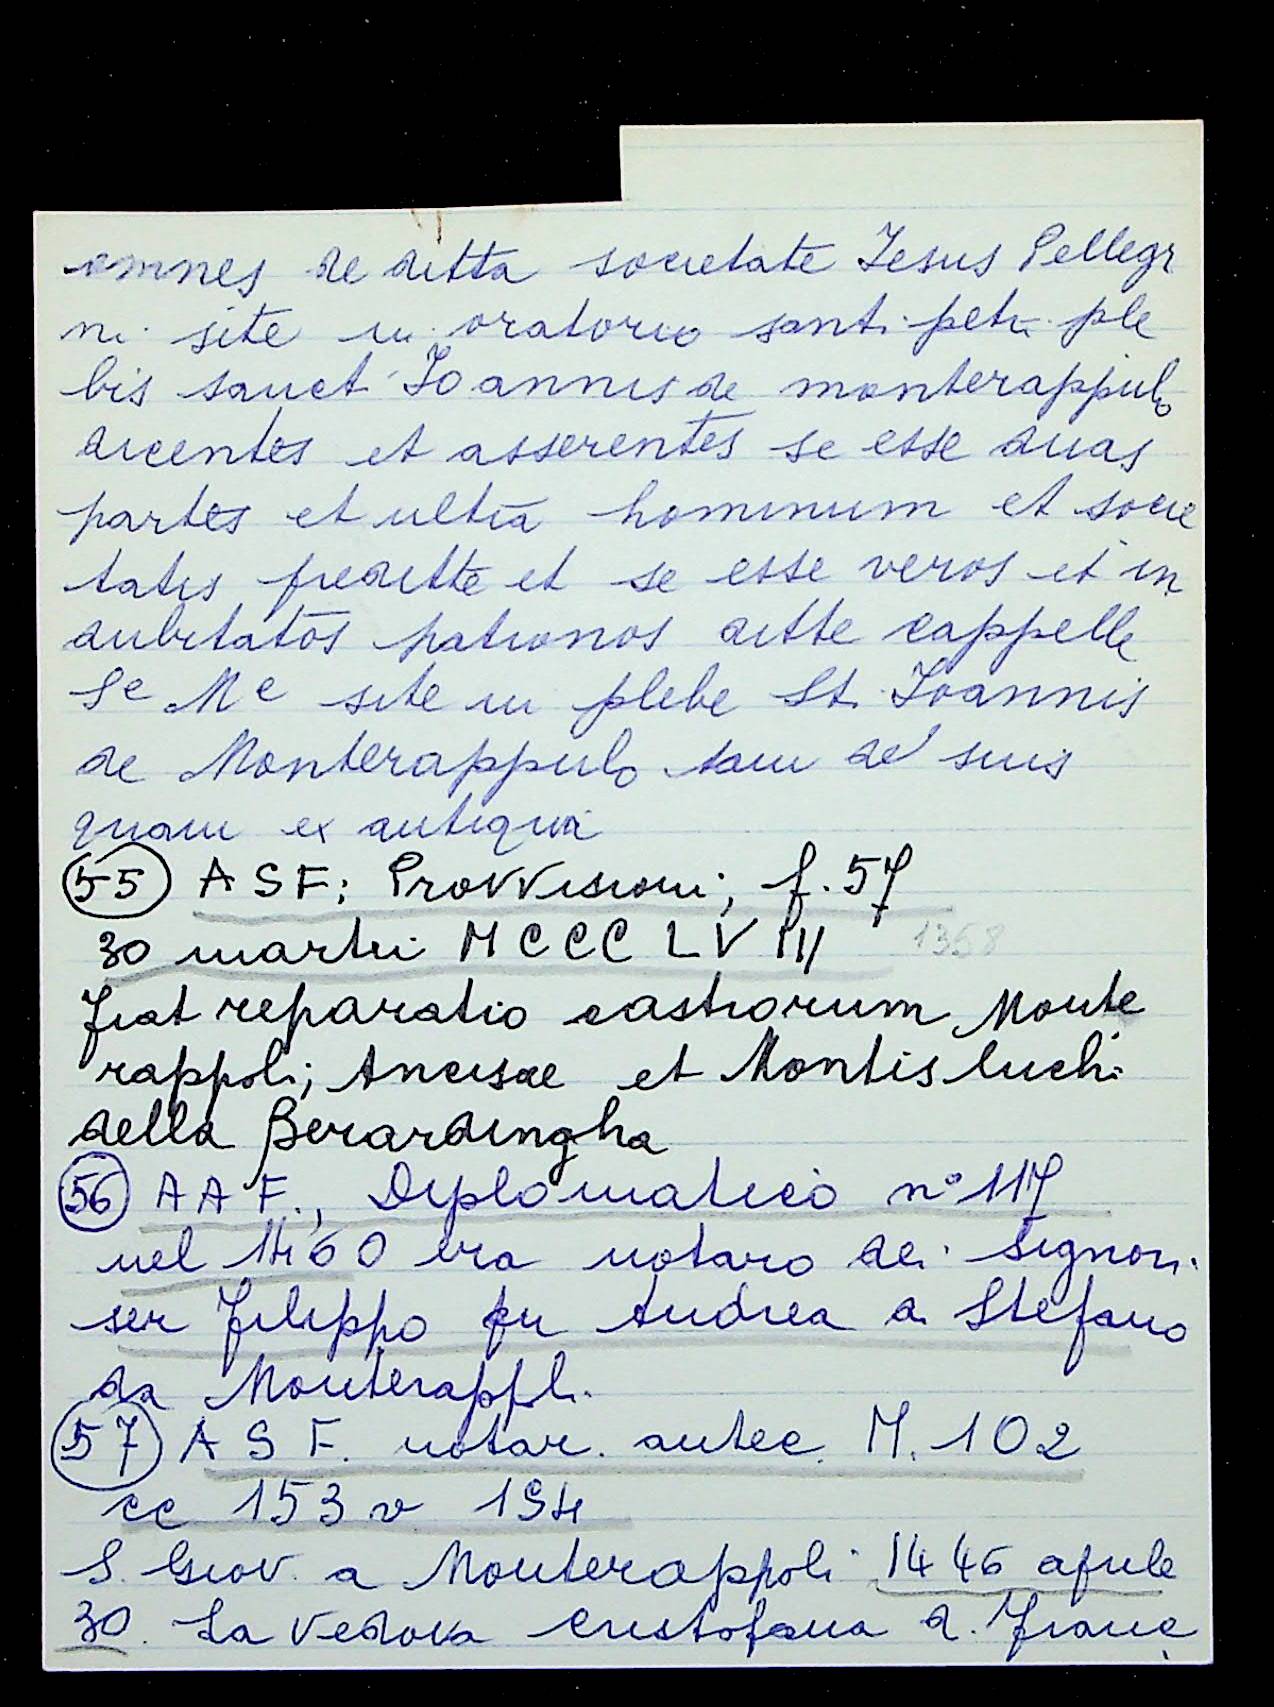 omnes de ditta societate Jesus Pellegr
ni site in oratorio santi petri ple
bis sancti Joannis de monterappulo
dicentes et asserentes se esse duas
partes et ultra hominum et socie
tatis preditte et se esse veros et in
dubitatos patronos ditte cappelle
Se Me site in plebe St. Joannis
de Monterappulo tam de suis
quam ex antiqua
55 ASF; Provvisioni; f. 57
30 martii MCCCLVIII 1358
Fiat reparatio castrorum Monte
rappoli; Ancisae et Montisluchi
della Berardingha
56 AAF., Diplomatico n° 117
nel 1460 era notaro dei Signori
ser Filippo fu Andrea di Stefano
da Monterappoli
57 ASF. notar. antec. M. 102
cc 153v 194
S. Giov. a Monterappoli 1446 aprile
30. La vedova Cristofana d. Franc